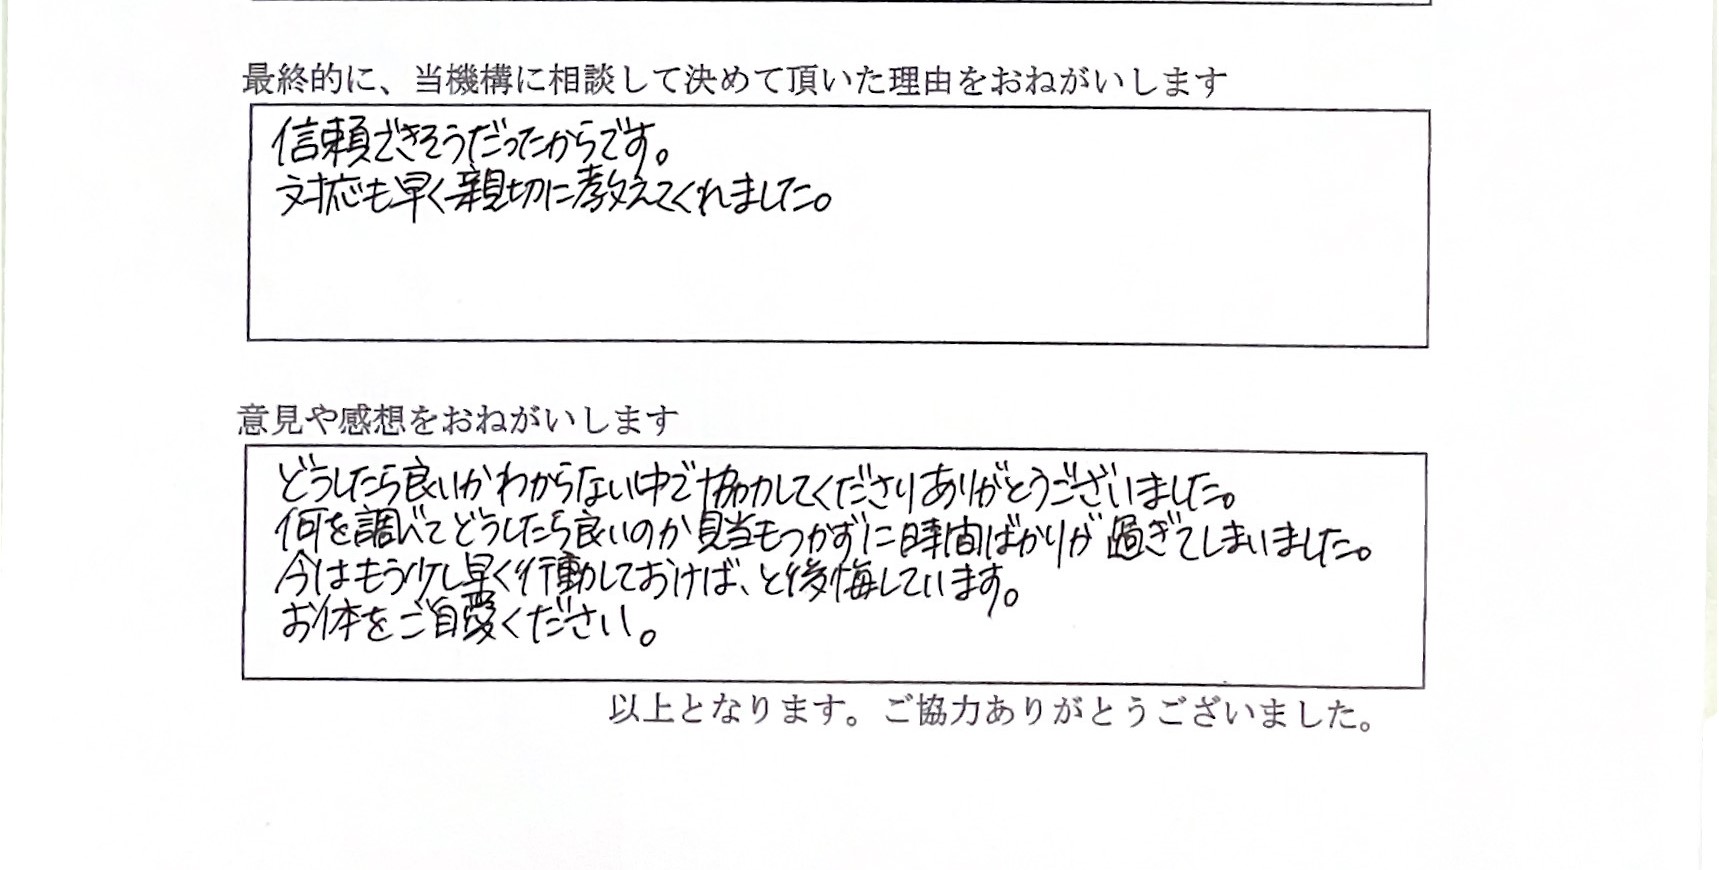 最終的に、当機構に相談して決めて頂いた理由をおねがいします
信頼できそうだったからです。
対応も早く親切に教えてくれました。
意見や感想をおねがいします
どうしたら良いかわからない中で協力してくださりありがとうございました。
何を調べてどうしたら良いのか見当もつかずに時間ばかりが過ぎてしまいました。
今はもう少し早く行動しておけば、と後悔しています。
お体をご自愛ください。
以上となります。ご協力ありがとうございました。